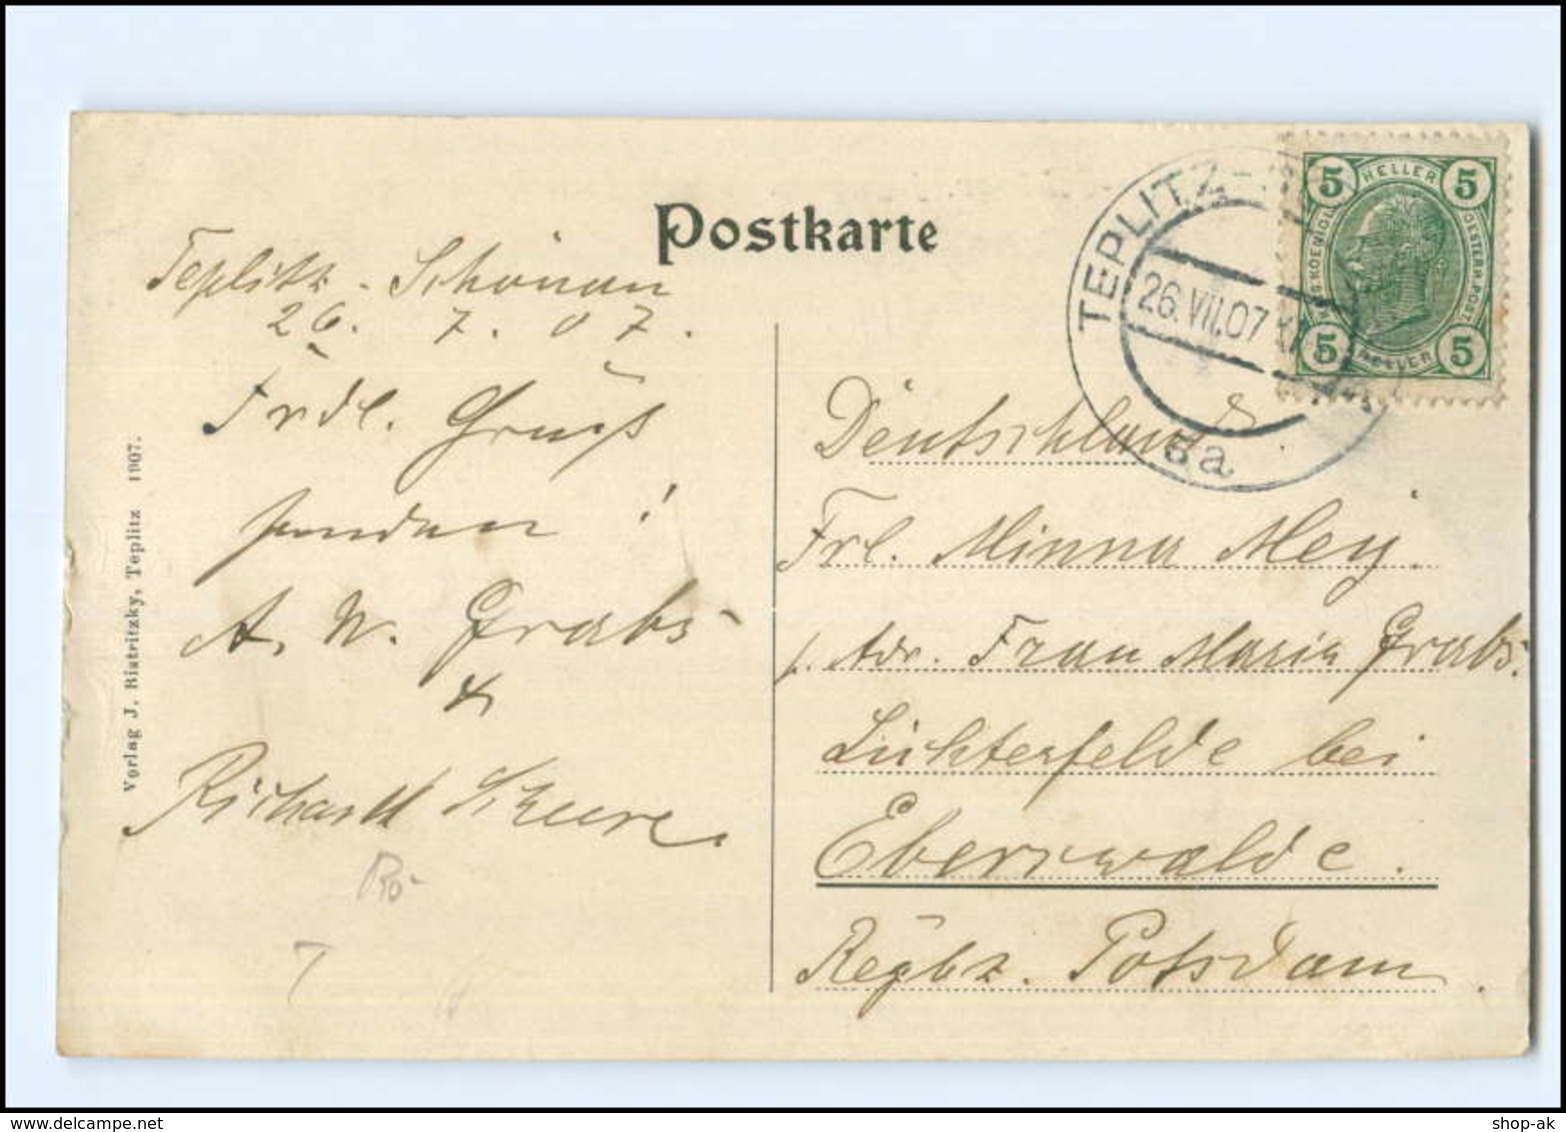 Postkarte
Teplitz - Schönau
26. 7. 07.
Frdl. Gruß
senden !
A. W. Grabs
&
Richard Scheere.
Verlag J. Bistritzky, Teplitz 1907.
TEPLITZ-
26.VII.07
8a
5 HELLER 5
OESTERR. POST
5 HELLER 5
Deutschland.
Frl. Minna Mey.
p. Adr. Frau Maria Grabs.
Lichterfelde bei
Eberswalde.
Regbz. Potsdam.
shop-ak